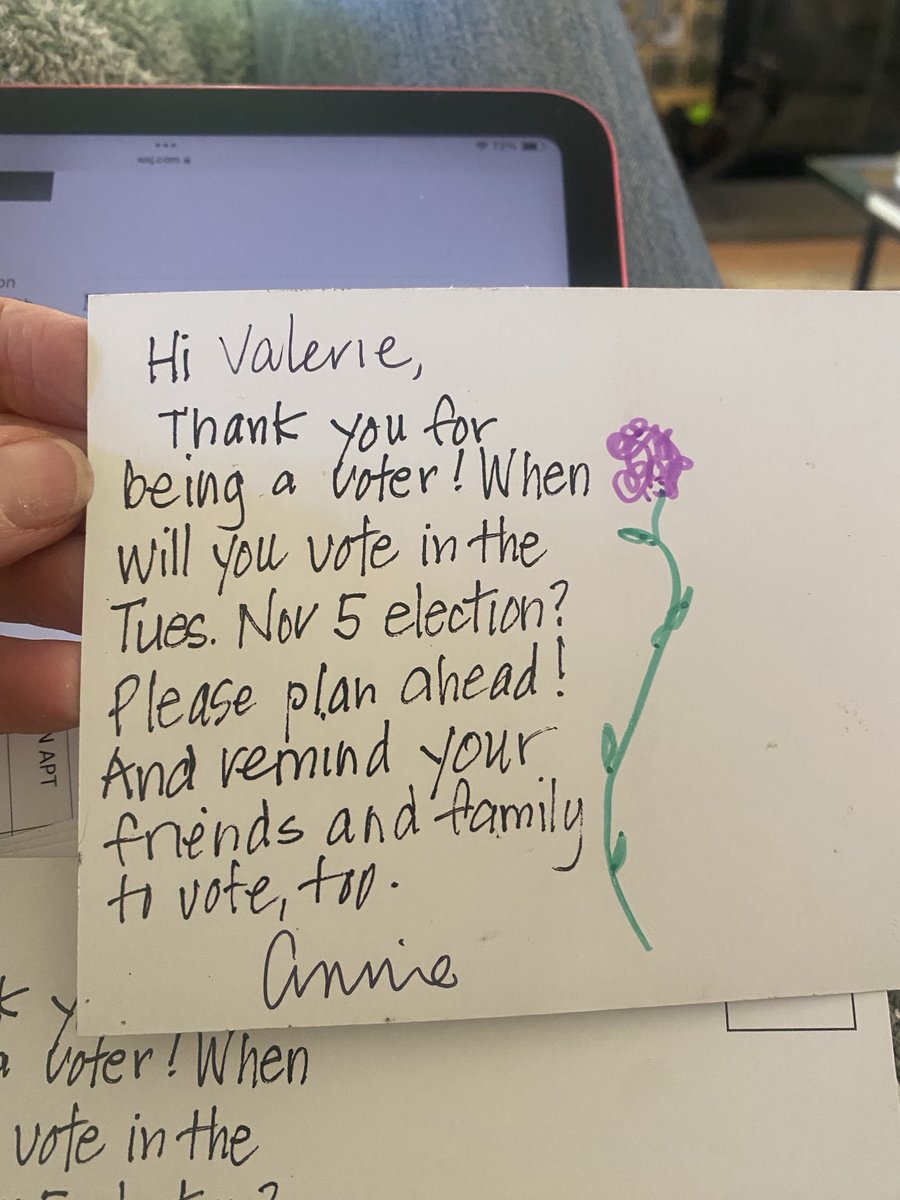 wsj.com
72%
on
Hi Valerie,
Thank you for
being a voter! When
will you vote in the
Tues. Nov 5 election?
Please plan ahead!
And remind your
friends and family
to vote, too.
Annie
N APT
k y
a voter! When
vote in the